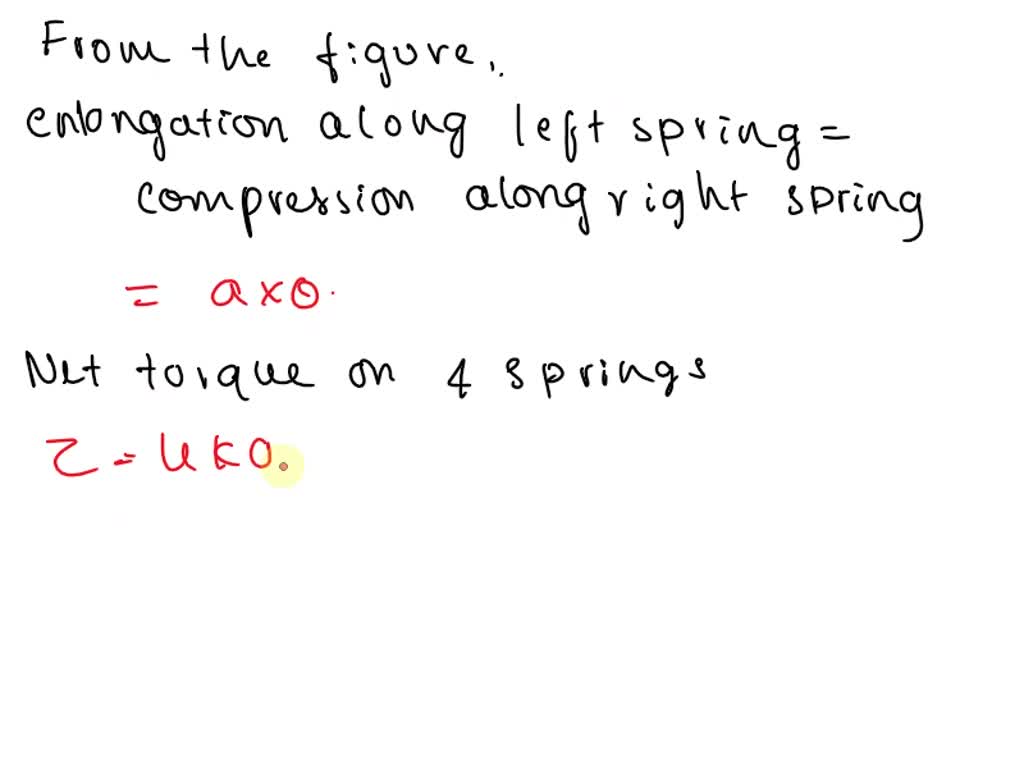 From the figure,.
enlongation along left spring =
compression along right spring
= a×θ.
Net torque on 4 springs
τ = 4kθ